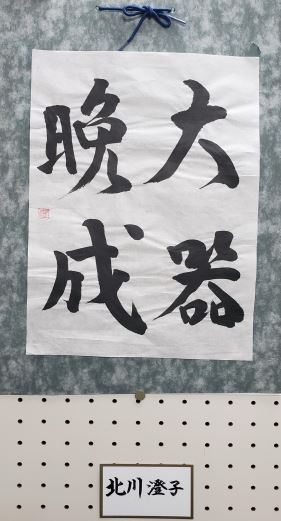 大器
晩成
北川 澄子